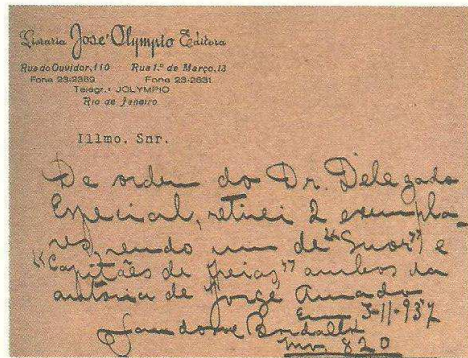 Livraria José Olympio Editora
Rua do Ouvidor, 110 Rua 1.º de Março, 13
Fone 23-2389 Fone 23-2631
Telegr.: JOLYMPIO
Rio de Janeiro
Illmo. Snr.
De ordem do Dr. Delegado
Especial, retirei 2 exempla-
res, sendo um de "Suor" e
"Capitães de Areias" ambos da
autoria de Jorge Amado
Em, 3-11-937
820